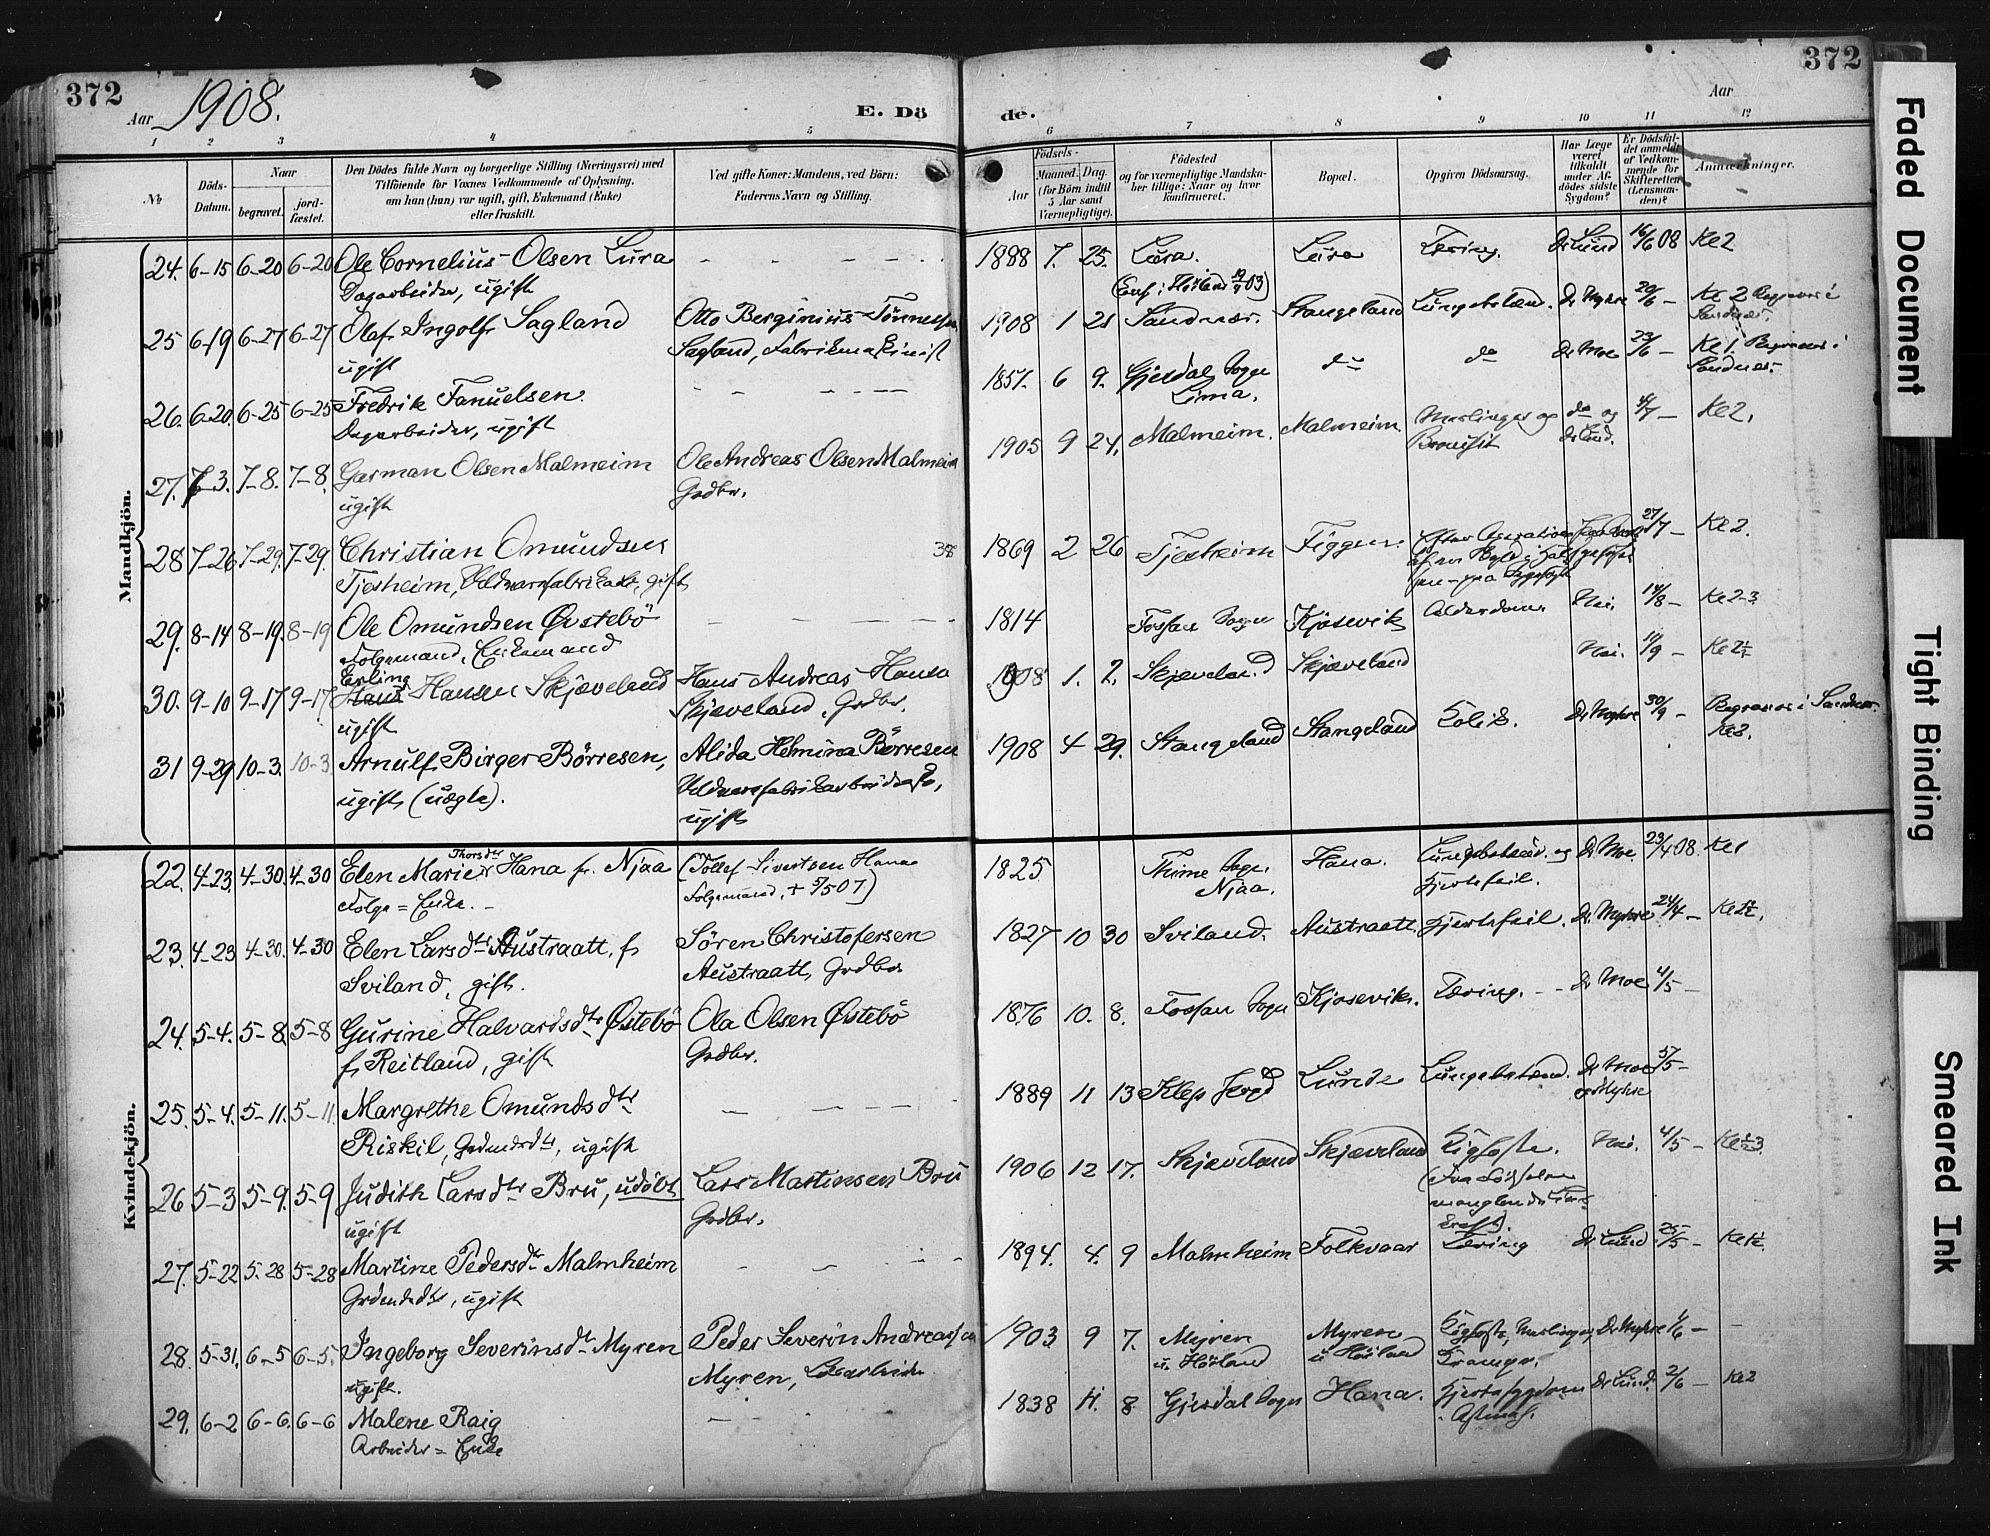 372
Aar 1908.
E. Dö
de.
Aar
372
1 2 3 4 5 6 7 8 9 10 11 12
No
Döds-Datum.
Naar
begravet.
jord-fæstet.
Den Dödes fulde Navn og borgerlige Stilling (Næringsvei) med
Tilföiende for Voxnes Vedkommende af Oplysning,
om han (hun) var ugift, gift, Enkemand (Enke)
eller fraskilt.
Ved gifte Koner: Mandens, ved Börn:
Faderens Navn og Stilling.
Födsels-
Aar
Maaned. Dag.
(for Börn indtil
5 Aar samt
Værnepligtige).
Födested
og for værnepligtige Mandska-
ber tillige: Naar og hvor
konfirmeret.
Bopæl.
Opgiven Dödsaarsag.
Har Læge
været
tilkaldt
under Af-
dödes sidste
Sygdom?
Er Dödsfal-
det anmeldt
af Vedkom-
mende for
Skifteretten
(Lensman-
den)?
Anmærkninger.
Mandkjön.
24. 6-15 6-20 6-20 Ole Cornelius Olsen Lura - - - - - 1888 7. 25. Lura. Lura Tæring. Dr Lund 16/6 08 Kl 2
Dagarbeider, ugift (Conf. i Höiland
25 6-19 6-27 6-27 Olaf Ingolf Sagland Otto Berginius Tönnessen 1908 1 21 Sandnæs. Stangeland Lungebetænd. Dr Myhre 20/6 - Kl 2 Begraves i
ugift Sagland, Fabrikmaskinist Sandnæs.
26. 6-20 6-25 6-25 Fredrik Fanuelsen. - - - - - 1851. 6 9. Gjesdal Sogn do do Dr Moe 23/6 - Kl 1. Begraves i
Dagarbeider, ugift Lima. Sandnæs.
27. 7-3. 7-8. 7-8. Garman Olsen Malmeim Ole Andreas Olsen Malmeim 1905 9 24. Malmeim. Malmeim. Meslinger og do og 4/7 - Kl 2.
ugift Grdbr. Bronchit Dr Lund.
28 7-26 7-29. 7-29. Christian Omundsen 38 1869 2 26 Tjesheim Figgen. Efter Operation 27/7 - Kl 2.
Tjesheim, Uldvarefabrikarb., gift
29. 8-14 8-19. 8-19 Ole Omundsen Övstebö - - - - 1814 Fossan Sogn Kjosevik Alderdom. Nei. 14/8 - Kl 2-3
Folgemand. Enkemand
30. 9-10 9-17 9-17 Erling Hans Hansen Skjæveland Hans Andreas Hansen 1908 1. 2. Skjæveland Skjæveland Nei. Kl 2½
ugift Skjæveland, Grdbr.
31 9-29 10-3. 10-3. Arnulf Birger Börresen, Alida Helmina Börresen 1908 4 29. Stangeland Stangeland Kolik. Dr Myhre 30/9 - Begraves i Sandnæs.
ugift, (uægte). Uldvarefabrikarbeiderske, Kl 2.
ugift
Kvindekjön.
22. 4-23. 4-30. 4-30 Elen Marie Thorsdtr Hana f. Njaa (Tollef Sivertsen Hana 1825 Thime Sogn. Hana. Lungebetænd. og Dr Moe 23/4 08. Kl 1
Folge = Enke. - Folgemand, + 5/5 07) Njaa. Hjertefeil.
23. 4-23 4-30. 4-30 Elen Larsdtr Austraatt, f. Sören Christofersen 1827 10 30 Sviland. Austraatt. Hjertefeil. Dr. Myhre 24/4 -
Sviland, gift. Austraatt, Grdbr
24. 5-4. 5-8. 5-8 Gurine Halvardsdtr Östebö Ola Olsen Östebö 1876 10. 8. Fossan Sogn Kjosevik. Tæring. - - Dr Moe 4/5 -
f. Reitland, gift Grdbr.
25. 5-4. 5-11. 5-11. Margrethe Omundsdtr - - - - 1889 11 13 Klep Lunde Lungebetænd. Dr Moe 5/5 -
Riskil, Grdmdsdtr, ugift og Myhre
26 5-3 5-9. 5-9 Judith Larsdtr Bru, udöbt Lars Martinsen Bru 1906 12 17. Skjæveland Skjæveland Kighoste. Nei. 4/5 -
ugift Grdbr. (Fra Födselen
manglende
27. 5-22 5-28 5-28 Martine Pedersdtr Malmheim - - - - 1894. 4. 9 Malmheim Folkvaar Tæring Dr Lund 25/5 -
Grdmdsdtr, ugift
28. 5-31. 6-5 6-5. Ingeborg Severinsdtr Myren Peder Severin Andreassen 1903 9 7. Myren Myren Kighoste, Meslinger, Dr Myhre 1/6 - -
ugift. Myren, u. Höiland u Höiland Kramper.
29. 6-2 6-6. 6-6 Malene Raig - - 1838 11. 8 Gjesdal Sogn Hana. Hjertesygdom Dr Lund. 2/6 - Kl 2
Arbeider = Enke
Faded Document
Tight Binding
Smeared Ink